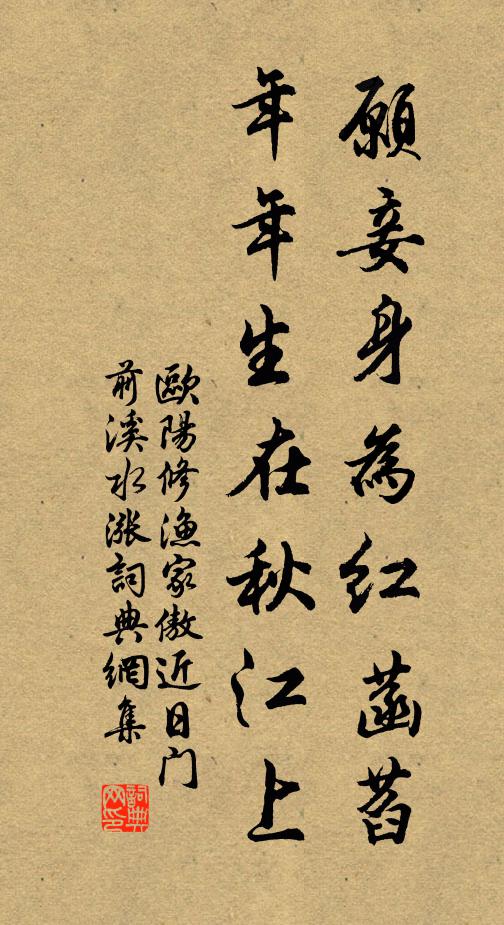 願妾身為紅菡萏
年年生在秋江上
歐陽修漁家傲近日门
前溪水漲詞典網集
詞典
网印